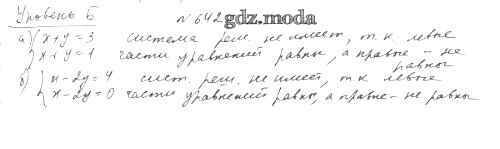 Уровень Б
№ 642
gdz.moda
а) { x + y = 3 система реш. не имеет, т к левые
x + y = 1 части уравнений равны, а правые - не равны
б) { x - 2y = 4 сист. реш. не имеет, т к левые
x - 2y = 0 части уравнений равны, а правые - не равны